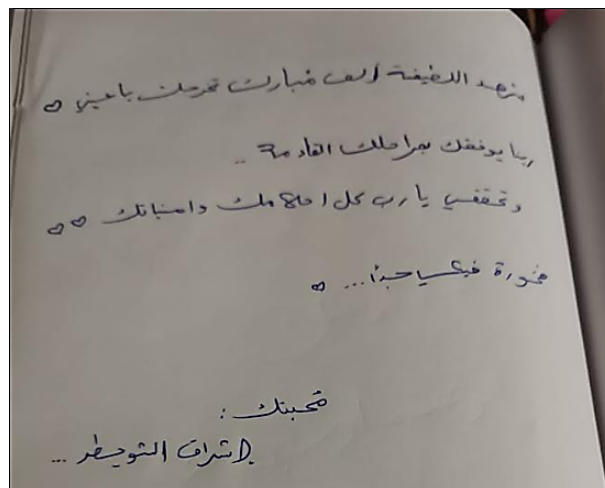 شهد اللطيفة ألف مبارك تخرجك ياعيني ♡
ربنا يوفقك بمراحلك القادمة ..
وتحققي يا رب كل احلامك وامنياتك ♡♡
فخورة فيكي جداً ... ♡
محبتك :
إشراق الشويطر ...